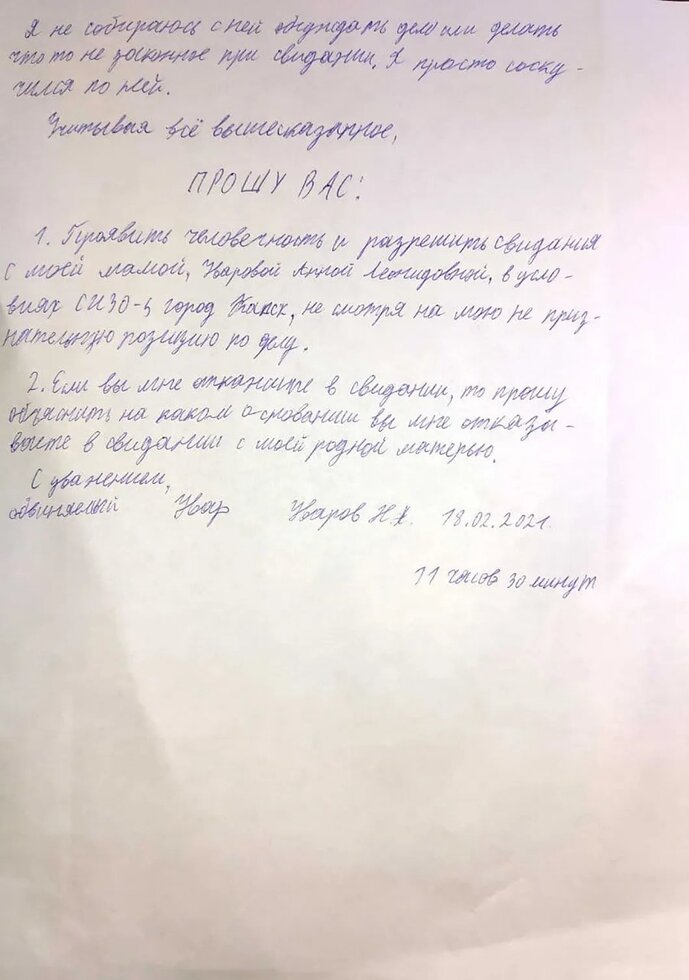 Я не собираюсь с ней обсуждать дело или делать
что то не законное при свидании. Я просто соску-
чился по ней.
Учитывая всё вышесказанное,
ПРОШУ ВАС:
1. Проявить человечность и разрешить свидания
с моей мамой, Уваровой Анной Леонидовной, в усло-
виях СИЗО-5 город Канск, не смотря на мою не приз-
нательную позицию по делу.
2. Если вы мне откажите в свидании, то прошу
объяснить на каком основании вы мне отказы-
ваете в свидании с моей родной матерью.
С уважением,
обвиняемый Увар Уваров Н.Х. 18.02.2021.
11 часов 30 минут